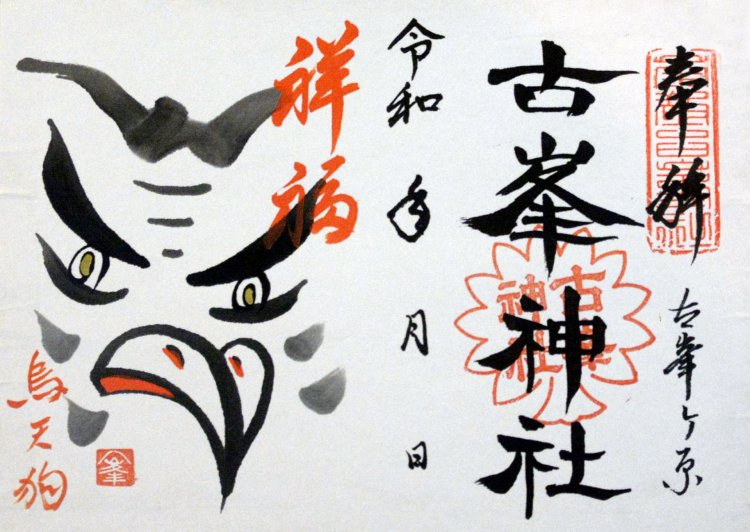 奉拝
古峯ヶ原
古峯神社
古峯
神社
令和 年 月 日
祥福
烏天狗